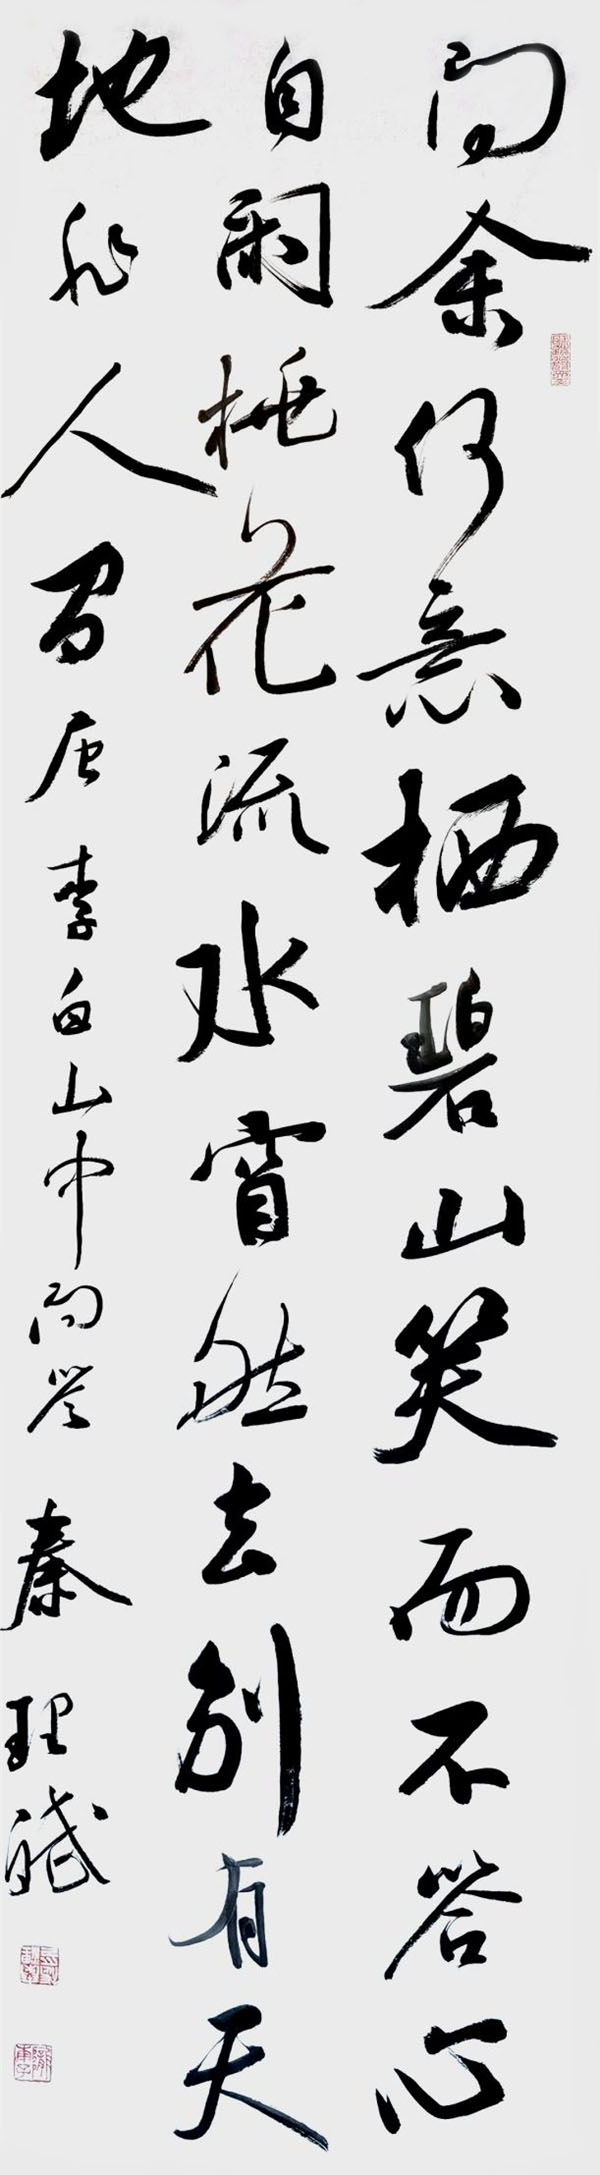 问余何意栖碧山笑而不答心
自闲桃花流水窅然去别有天
地非人间唐李白山中问答 秦理